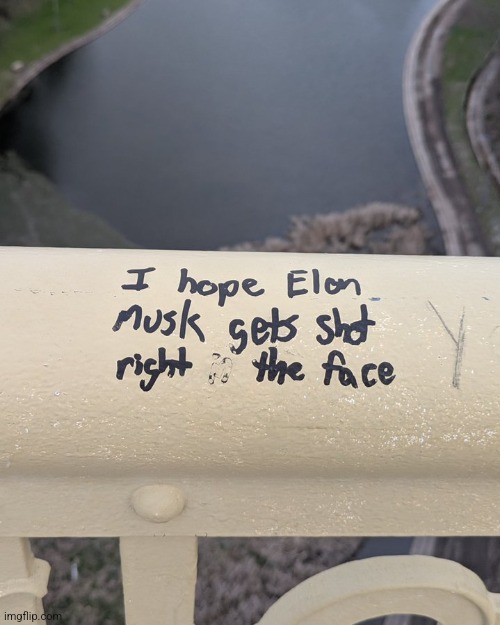 I hope Elon
Musk gets shot
right the face
imgflip.com